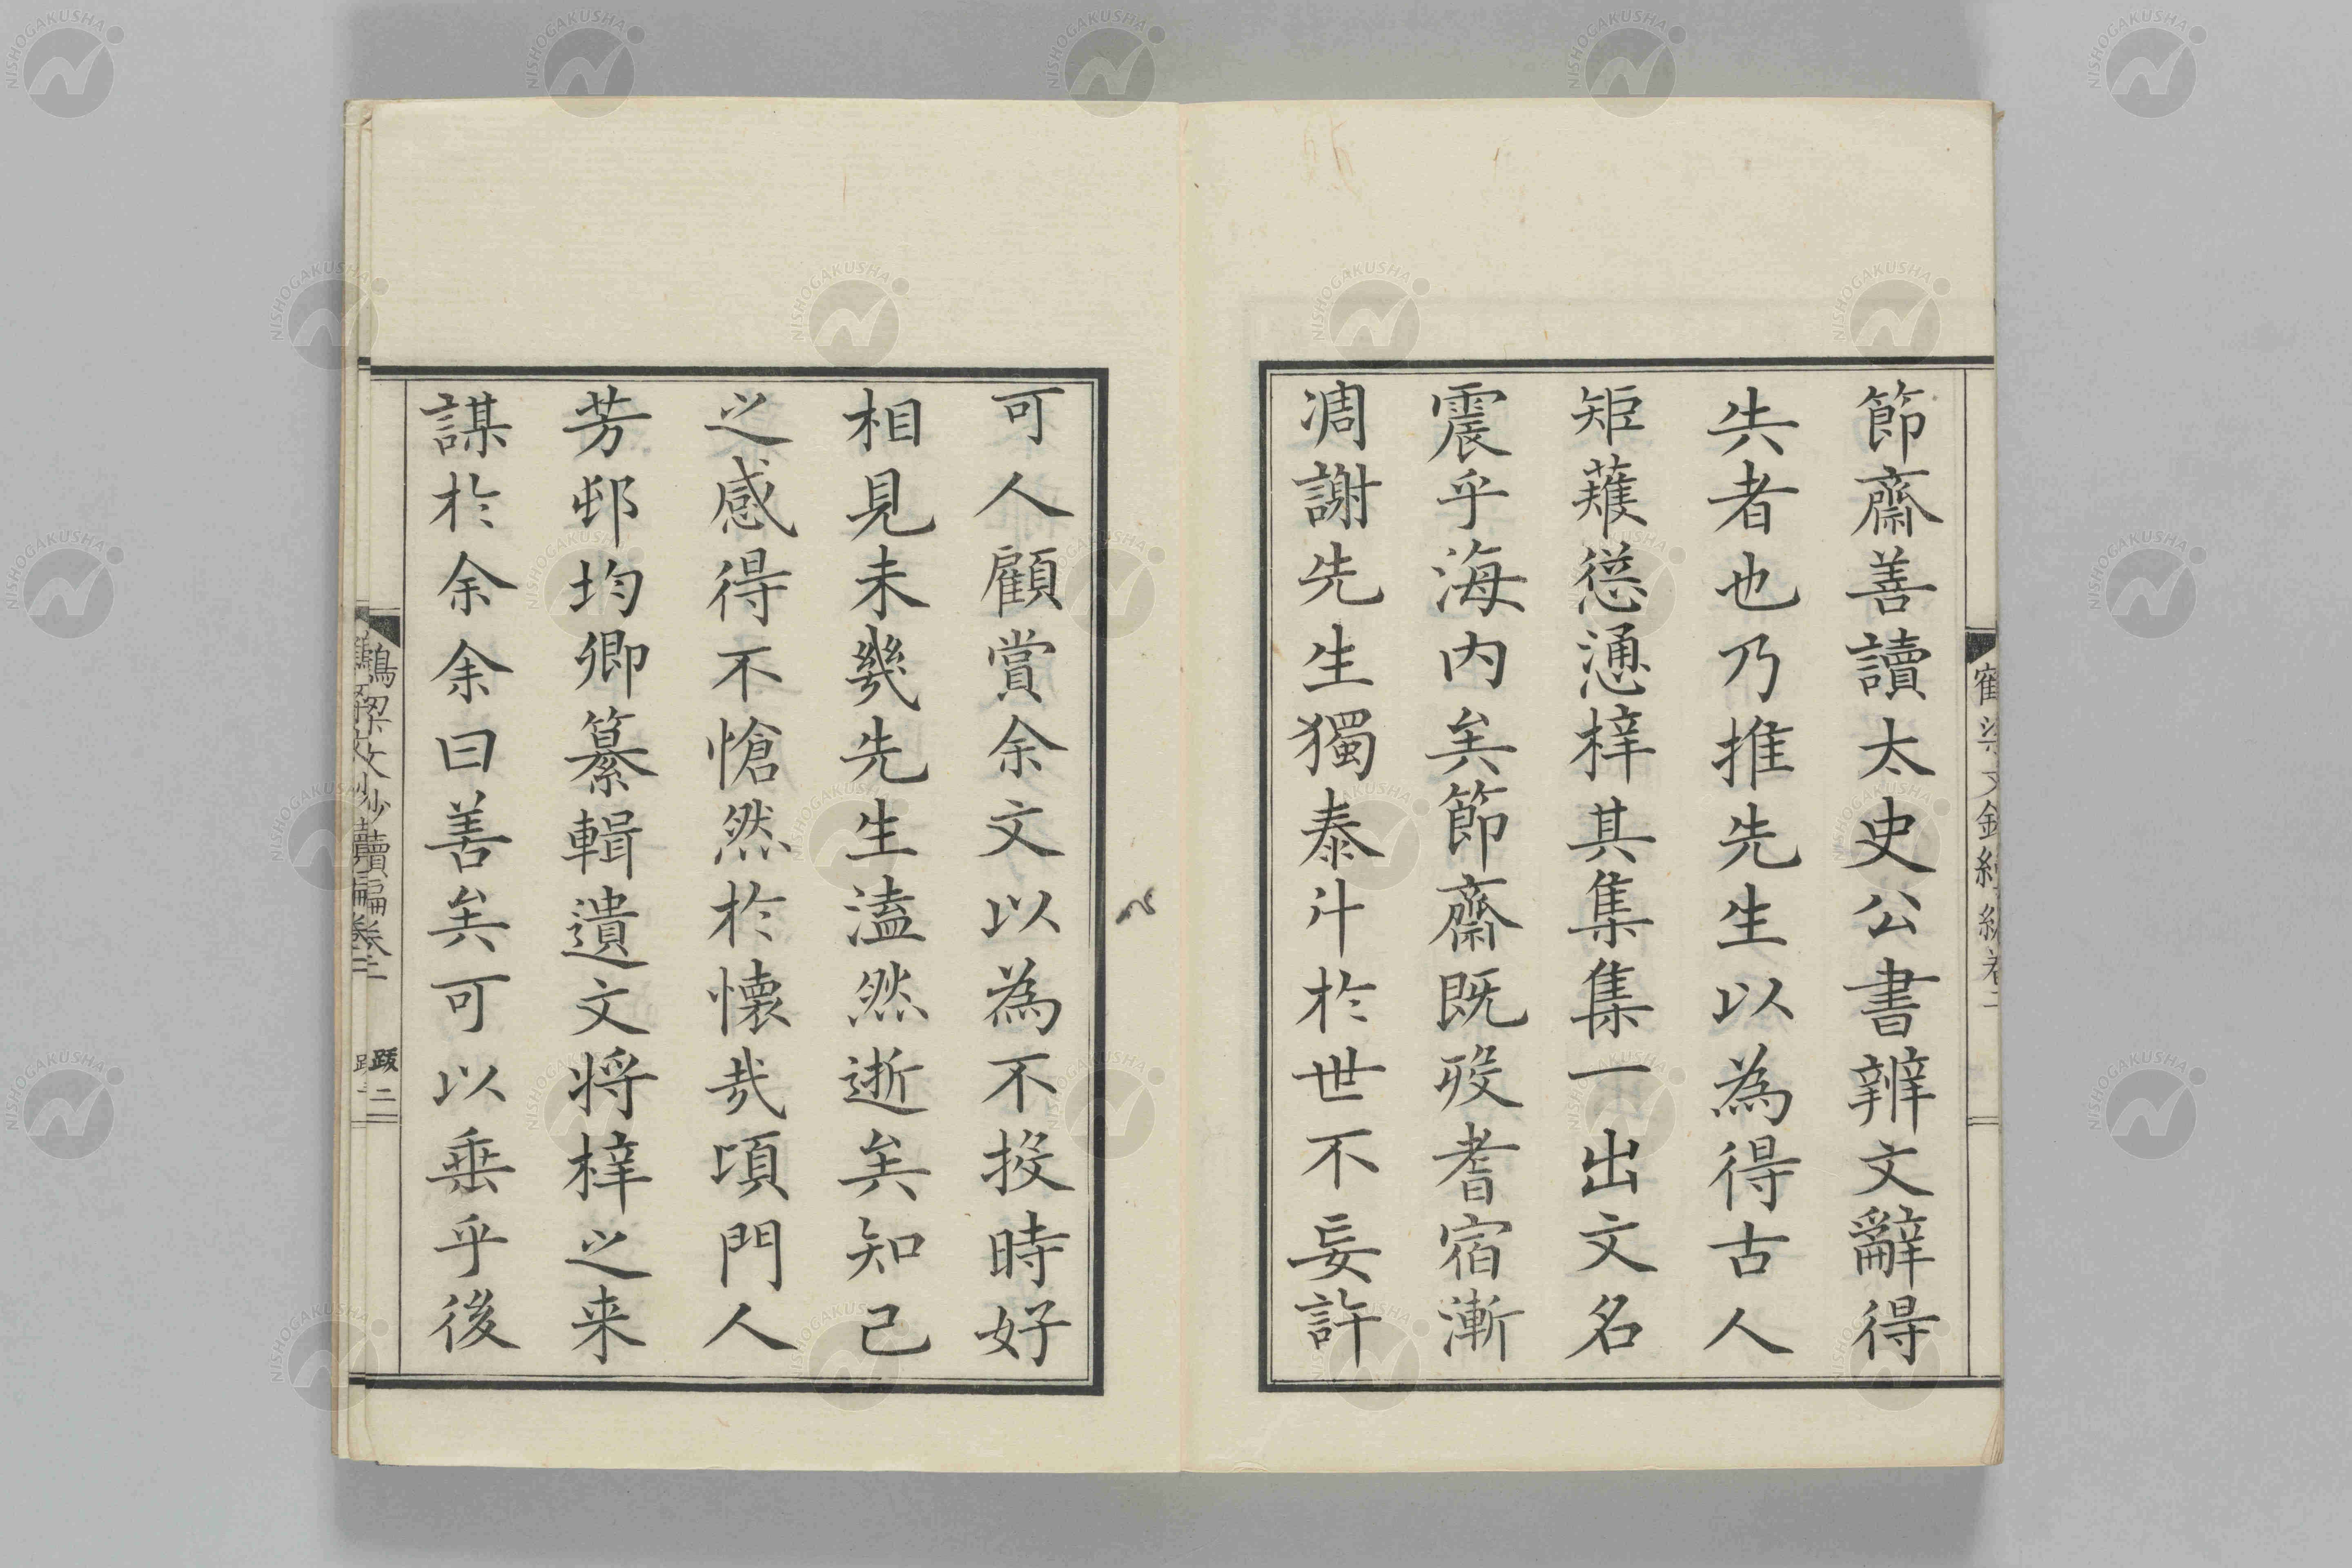 節齋善讀太史公書辨文辭得
失者也乃推先生以為得古人
矩矱慫慂梓其集集一出文名
震乎海内矣節齋既歿耆宿漸
凋謝先生獨泰斗於世不妄許
可人顧賞余文以為不投時好
相見未幾先生溘然逝矣知己
之感得不愴然於懷哉頃門人
芳邨均卿纂輯遺文将梓之来
謀於余余曰善矣可以垂乎後
跋二
NISHOGAKUSHA